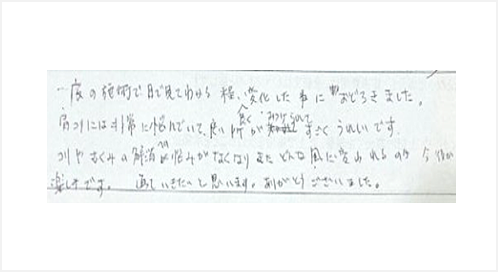 一度の施術で目で見てわかる程、変化した事におどろきました。
肩コリには非常に悩んでいて、良い所が見つけられてすごくうれしいです。
コリやむくみの解消で悩みがなくなりまたどんな風に変われるのか今後が
楽しみです。通いきたいと思います。ありがとうございました。